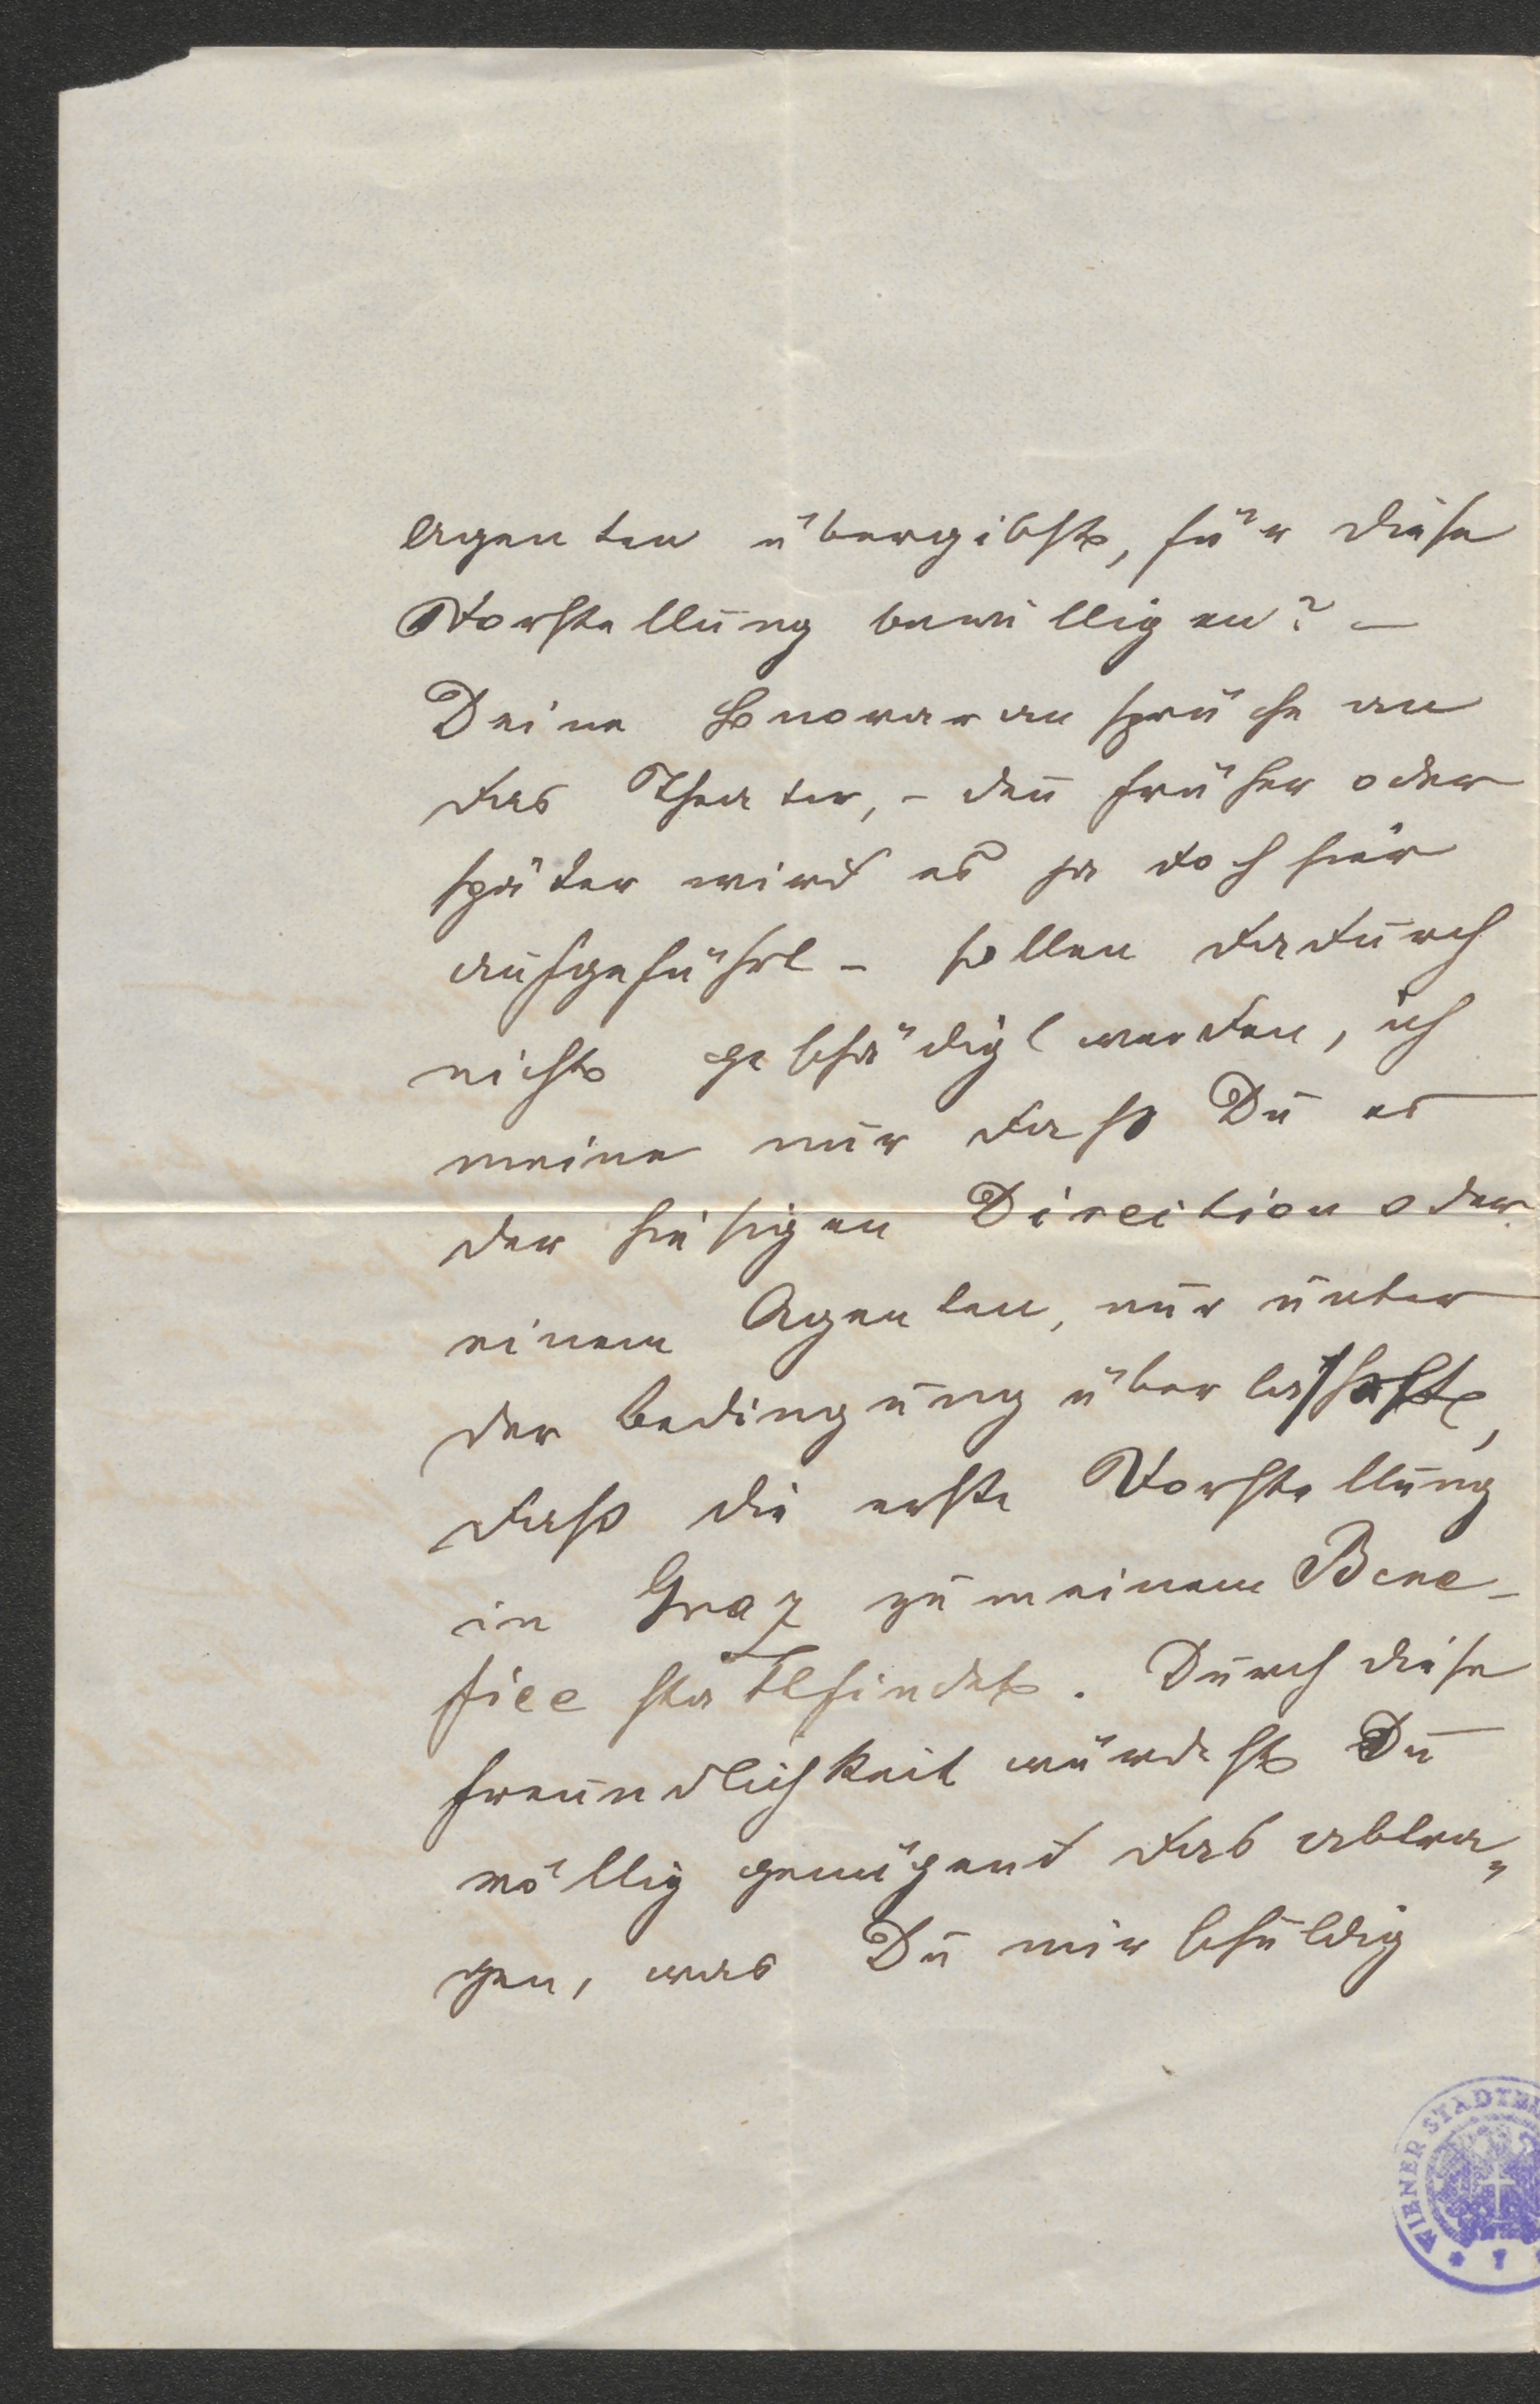 Agenten übergibst, für diese
Vorstellung bewilligen? –
Deine Honoraransprüche an
das Theater, – den̄ früher oder
später wird es ja doch hier
aufgeführt – sollen dadurch
nicht geschädigt werden, ich
meine nur daß Du es
der hiesigen Direction oder
einem Agenten, nur unter
der Bedingung überlassest,
daß die erste Vorstellung
in Graz zu meinem Bene-
fice stattfindet. Durch diese
Freundlichkeit würdest Du
völlig genügend das abtra„
gen, was Du mir schuldig
WIENER STADTB